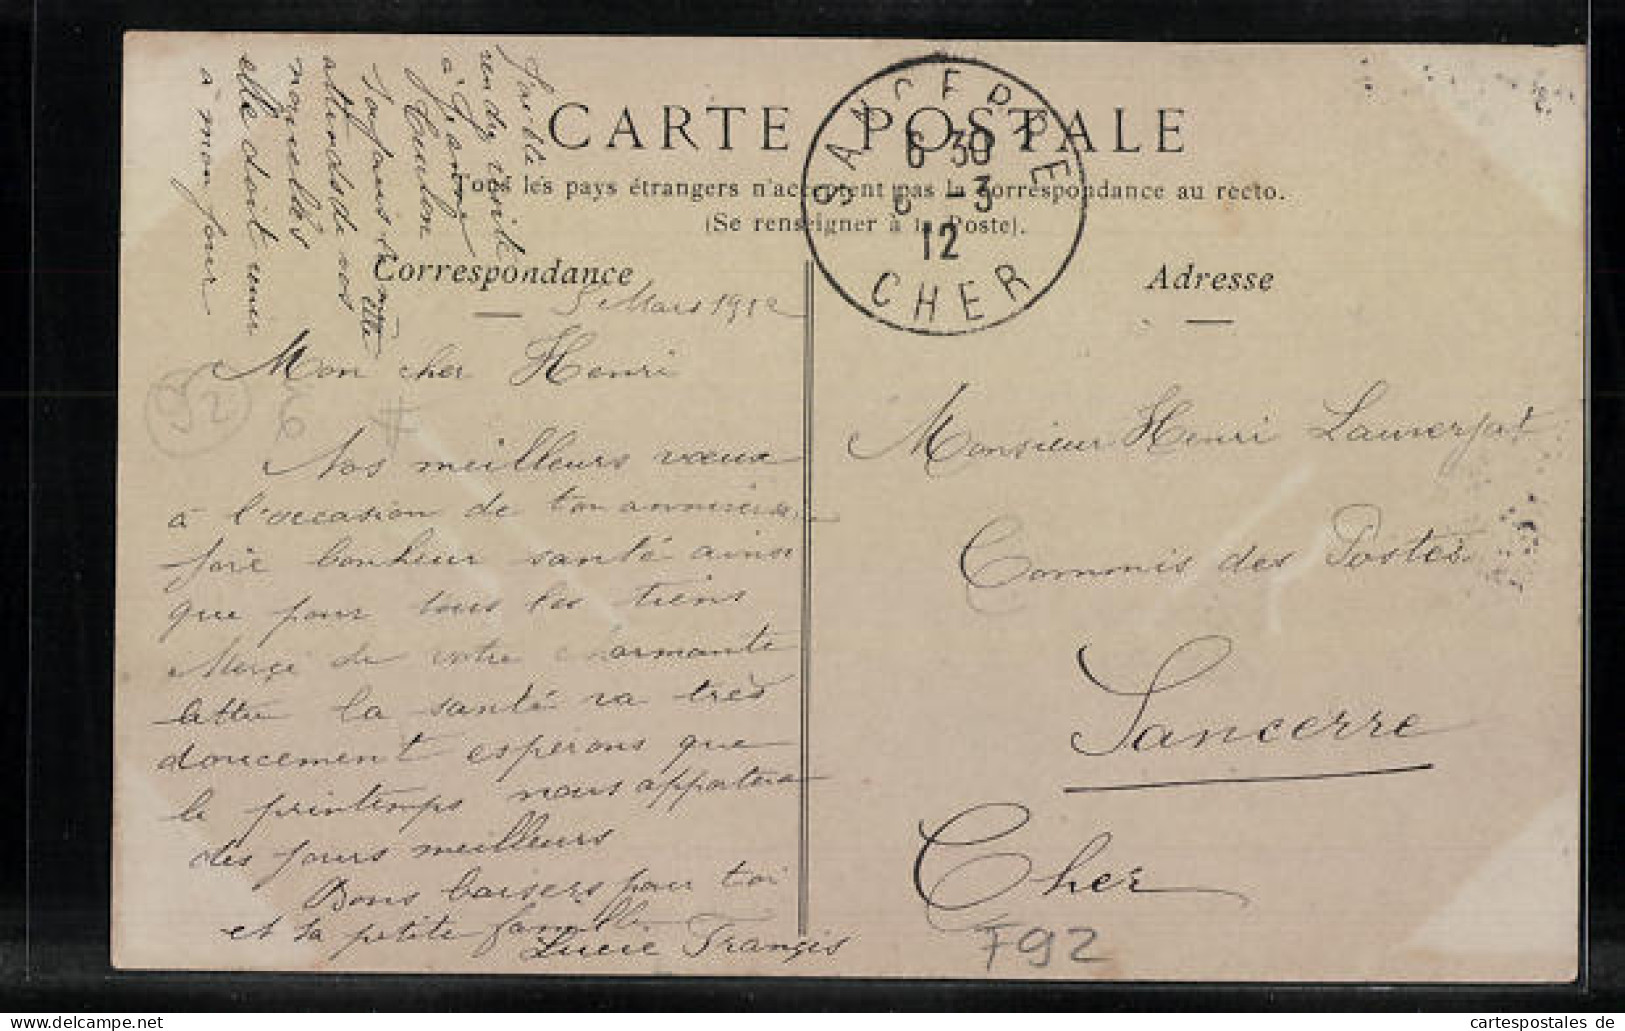 CARTE POSTALE
Tous les pays étrangers n'acceptent pas la correspondance au recto.
(Se renseigner à la Poste).
Correspondance
Adresse
SANCERRE
6 30
6 -3
12
CHER
5 Mars 1912
Mon cher Henri
Nos meilleurs vœux
à l'occasion de ton
joie bonheur santé ainsi
que pour tous les tiens
Merçi de votre charmante
lettre la santé va très
doucement espérons que
le printemps nous apportera
des jours meilleurs
Bons baisers pour toi
et ta petite famille
Lucie Françis
rendu visite
à Jeanne
attends de vos
nouvelles
elle doit venir
à mon jour
Monsieur Henri Lauverjat
Commis des Postes
Sancerre
Cher
F92
cartespostales de